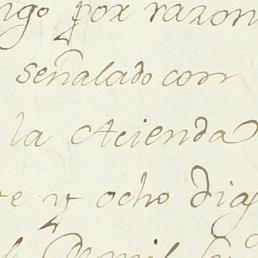 igo por razon
señalado con
la Acienda
te y ocho dias